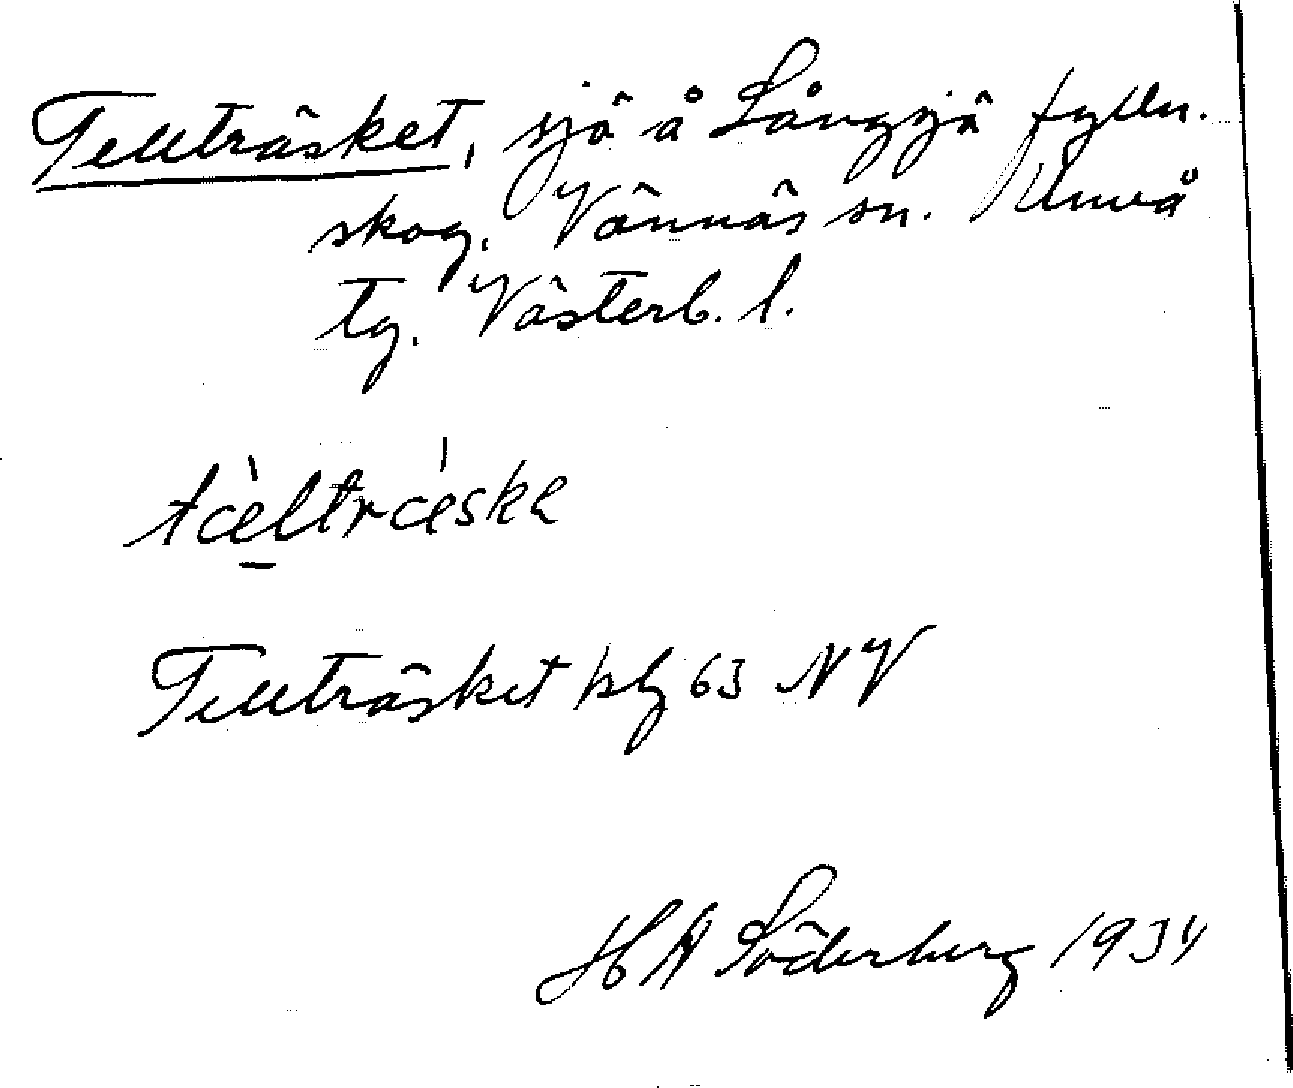 Tellträsket, sjö å Långsjö fylln.
skog. Vännäs sn. Umeå
tg. Västerb. l.
tæ̀ltrǽske
Tellträsket blg 63 NV
H A Söderberg 1934